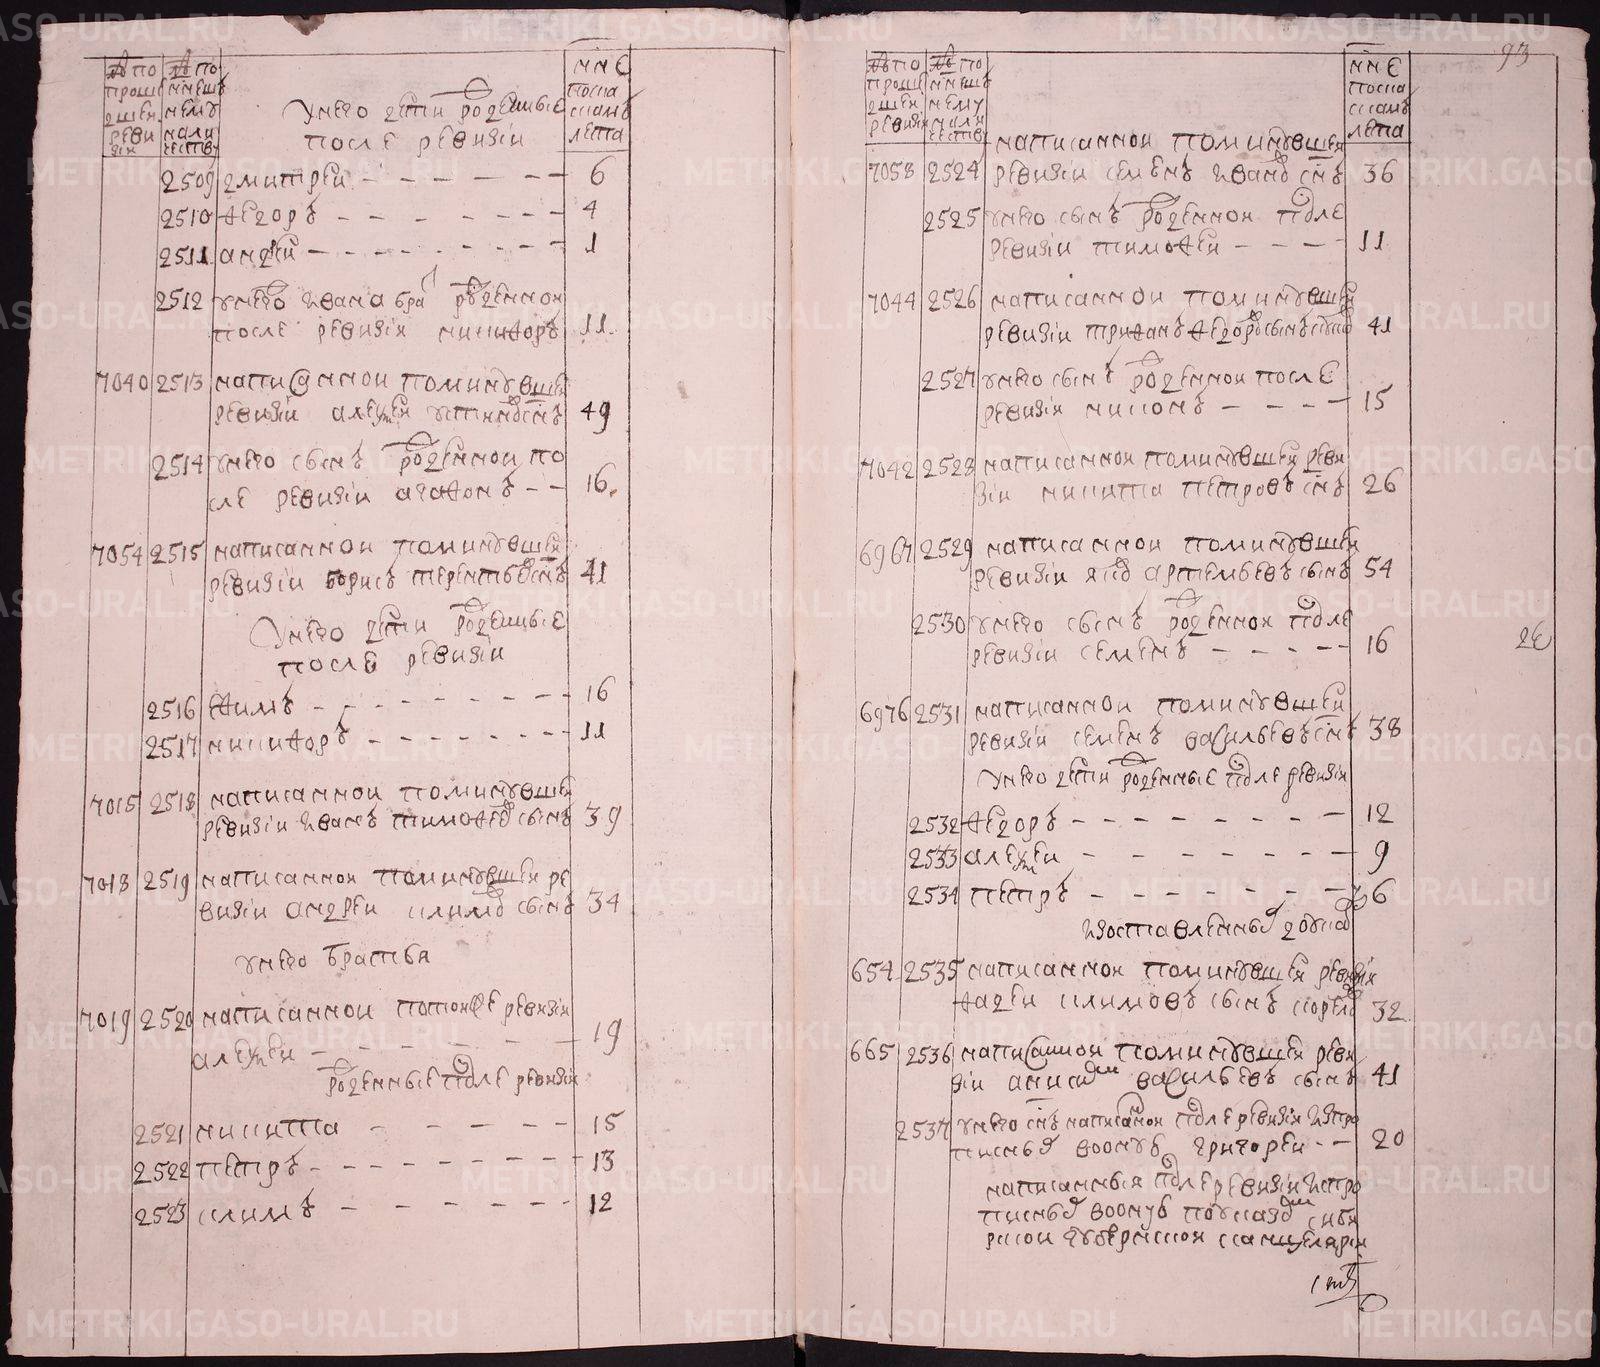 № по прошедшей ревизiи
№ по нынешнему наличеству
ныне по сказкам лета
У него дети рожденные
после ревизiи
2509 дмитреи 6
2510 ѳедоръ 4
2511 андреи 1
2512 у него ивана брат рожденнои
после ревизiи никиѳоръ 11
7040 2513 написаннои по минувшеи
ревизiи алексеи устиновъ снъ 49
2514 у него сынъ рожденнои по
сле ревизiи агаѳонъ 16
7054 2515 написаннои по минувшеи
ревизiи борисъ терентьевъ снъ 41
У него дети рожденные
после ревизiи
2516 ѳимъ 16
2517 никиѳоръ 11
7015 2518 написаннои по минувшеи
ревизiи иванъ тимоѳеевъ сынъ 39
7018 2519 написаннои по минувшеи ре
визiи андреи климовъ сынъ 34
у него братья
7019 2520 написаннои по тоиже ревизiи
алексеи 19
рожденные после ревизiи
2521 никита 15
2522 петръ 13
2523 климъ 12
93
№ по прошедшей ревизiи
№ по нынешнему наличеству
ныне по сказкамъ лета
написаннои по минувшеи
7058 2524 ревизiи семенъ ивановъ снъ 36
2525 у него сынъ рожденнои после
ревизiи тимоѳеи 11
7044 2526 написаннои по минувшеи
ревизiи триѳанъ ѳедоровъ сынъ 41
2527 у него сынъ рожденнои после
ревизiи никонъ 15
7042 2528 написаннои по минувшеи реви
зiи никита петровъ снъ 26
6967 2529 написаннои по минувшеи
ревизiи яковъ артемьевъ сынъ 54
2530 у него сынъ рожденнои после
ревизiи семенъ 16
6976 2531 написаннои по минувшеи
ревизiи семенъ васильевъ снъ 38
У него дети рожденные после ревизiи
2532 ѳедоръ 12
2533 алексеи 9
2534 петръ 6
654 2535 написаннои по минувшеи ревизiи
ѳадеи климовъ сынъ 32
665 2536 написаннои по минувшеи реви
зiи васильевъ сынъ 41
2537 у него снъ написаннои после ревизiи из про
писныхъ воокупъ григореи 20
написанныя после ревизiи ис про
писныхъ по указомъ сиби
рскои губернскои канцелярiи